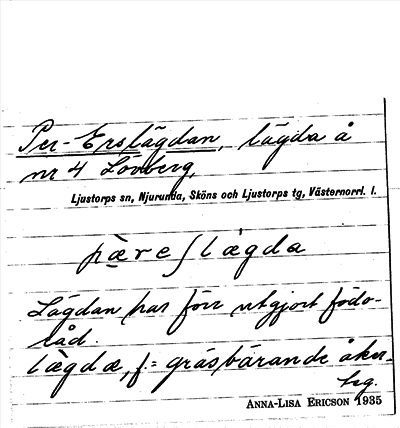 Per-Erslägdan, lägda å
nr 4 Lövberg,
Ljustorps sn, Njurunda, Sköns och Ljustorps tg, Västernorrl. l.
pæreʃlægda
Lägdan har förr utgjort födo-
råd.
lægdæ, f. = gräsbärande åker-
teg.
ANNA-LISA ERICSON 1935